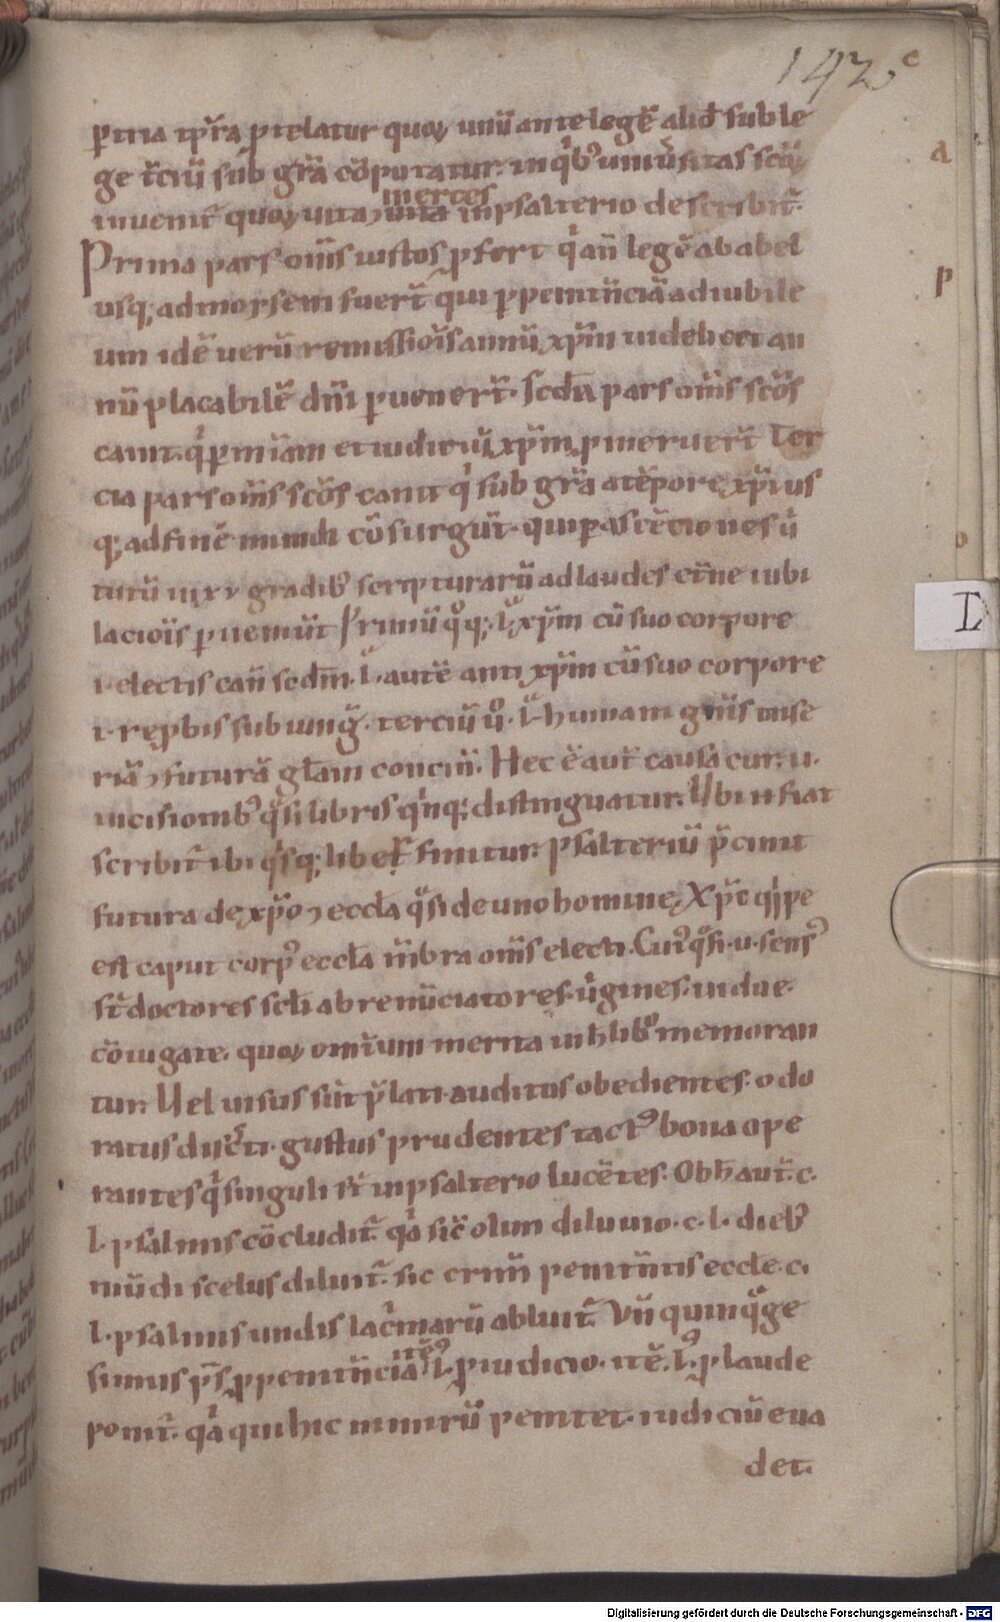 142
c
ꝑ tria tp̄ra p̄telatur quoꝝ unū ante legē aliđ sub le
ge t̄ciū sub gr̄a cōputatur. in qⁱbꝰ uniūsitas scōꝝ
inuenit̄ quoꝝ uita ⁊ merces inpsalterio describit̄.
Prima pars om̄s iustos p̄fert qⁱ an̄ legē ababel
usq; admoysem fuer̄t qui ꝑ penitn̄ciā adiubile
um idē uerū remissiōis annū xp̄m uideƚicet an
nū placabilē dn̄i ꝑuener̄t. Scđa pars om̄s scōs
canit. qⁱ ꝑ m̄iam et iudiciū xp̄m p̄meruer̄t Ter
cia pars om̄s scōs canit qⁱ sub gr̄a a tēpore xp̄i us
q; ad finē mundi cōsurgūt. qui ꝑ ascēciones ū
tutū in xv gradibꝰ scripturarū ad laudes et̄ne iubi
laciōis ꝑueniūt Primū q̊q; .L. xp̄m cū suo corpore
.i. electis can̄ scđm .L. autē anti xp̄m cū suo corpore
.i. rep̄bis subiung̃. terciū ů .L. humani gn̄is mise
riā ⁊ futurā gƚam concin̄. Hec ē aut̄ causa cur .u.
incisionibꝰ qᵃsi libris qⁱnq; distinguatur. Ubi n̄ fiat
scribit̄ ibi qⁱsq; liber finitur. Psalteriū p̄cinit
futura de xp̄o ⁊ eccƚa qᵃsi de uno homine, Xp̄c qⁱpe
est caput corpꝰ eccƚa m̄bra om̄s electi. Cuiꝰ qᵃsi .u. sensꝰ
st̄ doctores scƚi abrenūciatores. uⁱgines. uidue.
cōiugate. quoꝝ om̄ium merita in h̄ libꝰ memoran
tur. Uel uisus sūt p̄lati. auditus obedientes. odo
ratus discͬti. gustus prudentes tactꝰ bona ope
rantes qⁱ singuli st̄ in psalterio lucētes. Ob h̄ aut̄ .c.
l. psalmis cōcludit̄ qᵃ sic̄ olim diluuio .c. l. diebꝰ
mūdi scelus diluit̄. sic crim̄ penitn̄tis eccƚe .c.
l. psalmis undis lacⁱmarū abluit̄. Vn̄ quinqᵃge
simus p̄s ꝓ penitn̄ciā .L. ꝓ iudicio. itē .L. ꝓ laude
ponit̄. qᵃ qui hic nimirū penitet. iudiciū eua
det.
a
p
o
L
Digitalisierung gefördert durch die Deutsche Forschungsgemeinschaft - DFG